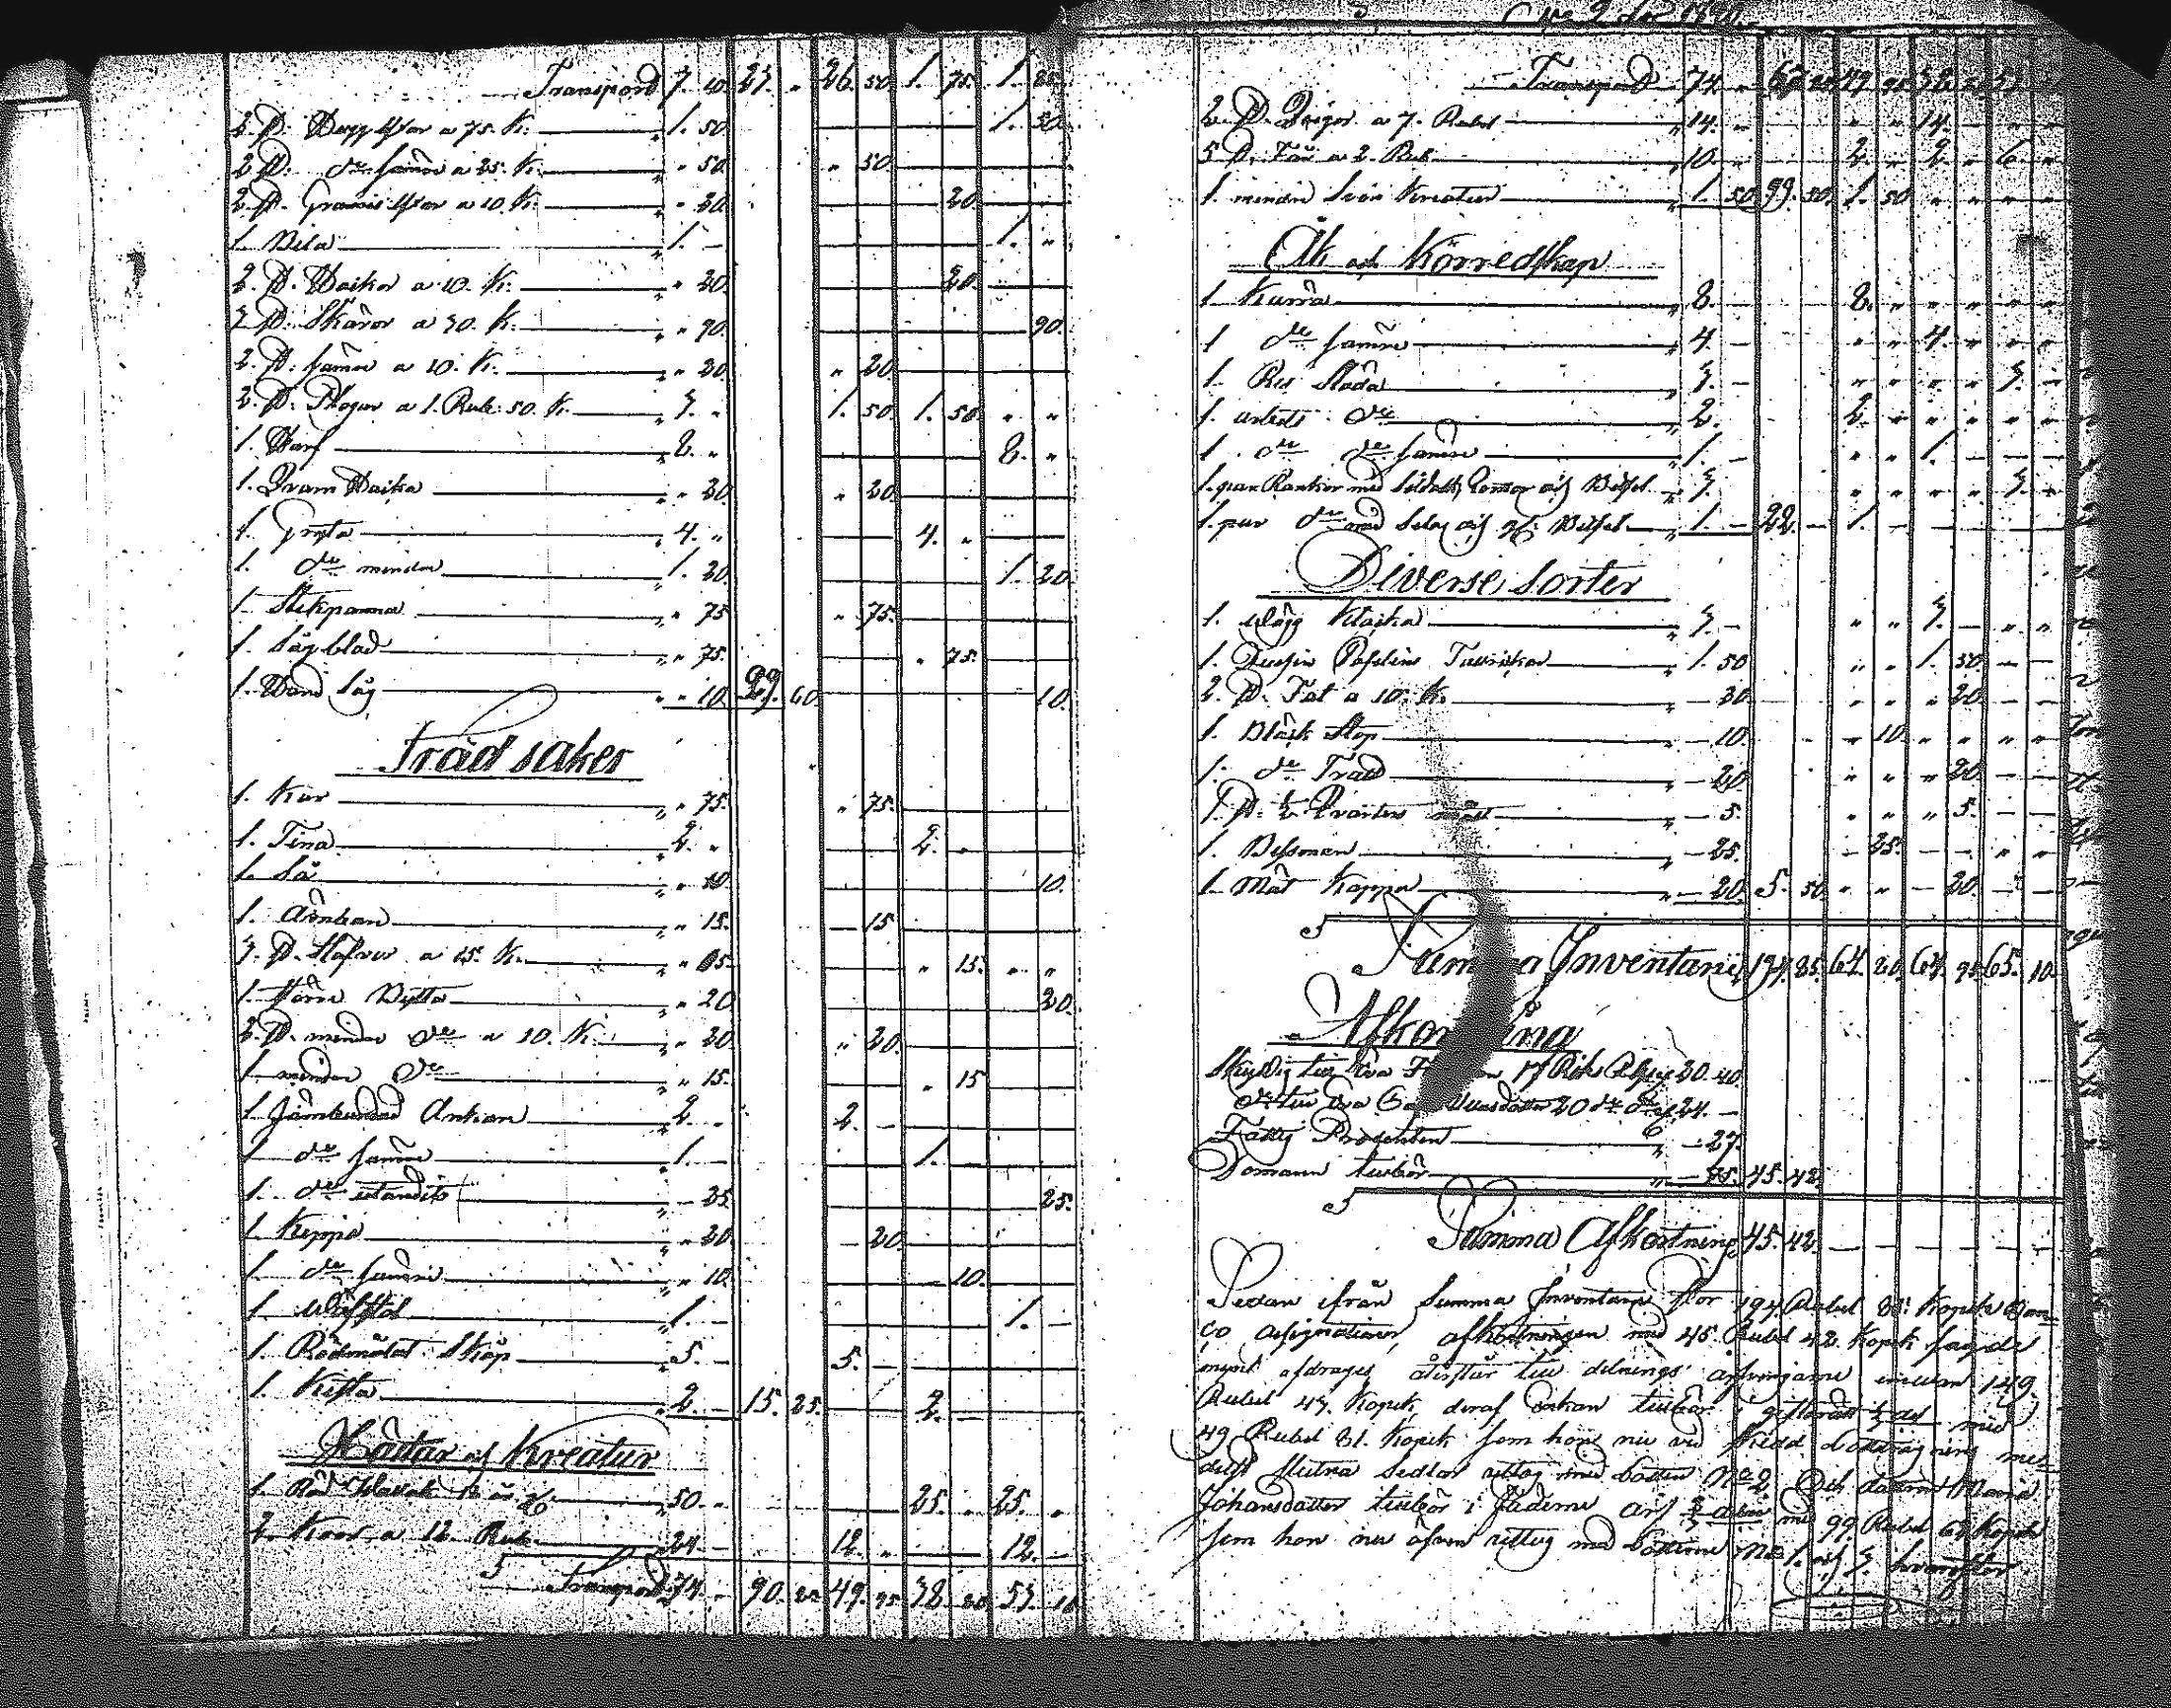 Transport 7. 40. 27. " 26. 50. 1. 75. 1. 25.
2. St. Yxor a 75. K. " 1. 50. 1. 50.
2. St. do sämre a 25. K. " " 50. " 50.
2. St. Yxor a 10. K. " " 20. 20.
1. Bila " 1. – 1. "
2. St. a 10. K. " " 20. 20.
3. St. Skäror a 30. K. " " 90. 90.
2. St. sämre a 10. K. " " 20. " 20.
2. St. Plogar a 1. Rub. 50. K. " 3. " 1. 50. 1. 50. " "
1. Harf " 8. " 8. "
1. " " 20. " 20.
1. Gryta " 4. " 4. "
1. do mindre " 1. 20. 1. 20.
1. Stekpanna " " 75. " 75.
1. Sågblad " " 75. " 75.
1. Hand Såg " " 10. 29. 60. 10.
Träd saker
1. Kar " " 75. " 75.
1. Tina " 2. " 2. "
1. Så " " 10. 10.
1. Ankare " " 15. – 15.
3. St. a 15. K. " " " 15. " "
1. Större Bytta " " 20. 20.
2. St. mindre do a 10. K. " " 20. " 20.
1. mindre do " " 15. " 15.
1. Järnbundad Ankare " 2. – 2. –
1. do sämre " 1. – 1. –
1. do – 25. 25.
1. Kappa " " 20. – 20.
1. do sämre " " 10. – 10.
1. Wäfstol " 1. – 1. –
1. Rödmålat Skåp " 5. – 5. –
1. Kista " 2. – 15. 25. 2. –
Hästar och Kreatur
1. Röd " 50. " 25. " 25. "
2. Koor a 12. Rub. " 24. – 12. " 12. –
Transport 74. – 90. 49. 95. 38. 53.
Transport 74. " 49. 95. 38.
2. St. Qvigor a 7. Rubel " 14. " " " 14. – " "
5. St. Får a 2. Rub. " 10. " 2. " 2. " 6. "
1. mindre Svin Kreatur " 1. 50. 99. 50. 1. 50. " " " "
Åk och Körredskap
1. Kärra " 8. – 8. " " " " "
1. do sämre " 4. – " " 4. " " "
1. Res Släda " 3. – " " " " 3. –
1. arbets do " 2. 2. " " " " "
1. do do sämre " 1. – " " 1. – – –
1. par Rankor med och Betsel " 3. " " " " 3. "
1. par do med och Betsel " 1. – 22. – 1. –
Diverse Sorter
1. Wägg Klåcka " 3. – " " 3. – " "
1. Dussin Tallrickar " 1. 50. " " 1. 50. – –
2. St. Fat a 10. K. " – 20. " " " 20. – –
1. Bläck Stop " – 10. " 10. " " " "
1. do Tratt " – 20. " " " 20. – –
1. St. ½ Qvarters mått " – 5. " " " 5. – –
1. Besman " – 25. – 25. – – " "
1. Mål Kappa " – 20. 5. 50. " " – 20. – –
Summa Inventarii 194. 85. 64. 20. 64. 95. 65. 10.
Afkortning
Skyldig till 17 Rik 20. 40.
do till 20 do do 24. –
Fattig Procenten " – 27.
Domarn tillkör " – 75. 45. 42.
Summa Afkortning 45. 42. – – – – – –
Sedan ifrån Summa Inventarii stor 194 Rubel 85 Kopek Ban-
co Assignationer, afkortningen med 45. Rubel 42. Kopek
afdrages återstår till delnings arfvingarne emellan 149.
Rubel 43. Kopek, deraf Enkan tillkör i giftorätt ⅓ del med
49 Rubel 81. Kopek som hon nu vid skedd Lottdragning med-
delst Slutna Sedlar uttog med Lotten No 2. Och dottren Maria
Johansdotter tillkör i fäderne arf ⅔ delar med 99 Rubel 62 Kopek
som hon nu äfven uttog med Lotterne No 1. och 3. hvarefter